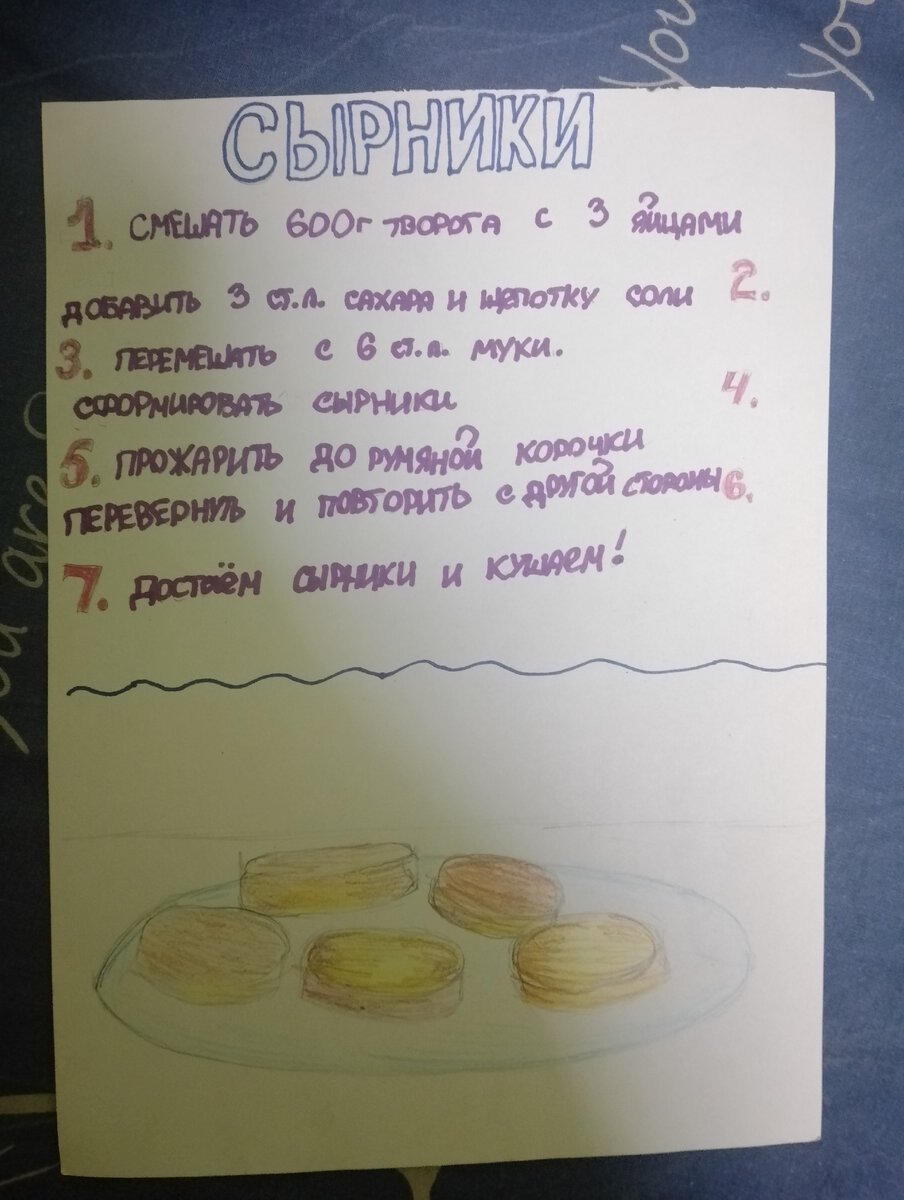 СЫРНИКИ
1. СМЕШАТЬ 600г ТВОРОГА С 3 ЯЙЦАМИ
ДОБАВИТЬ 3 СТ.Л. САХАРА И ЩЕПОТКУ СОЛИ 2.
3. ПЕРЕМЕШАТЬ С 6 СТ.Л. МУКИ.
СФОРМИРОВАТЬ СЫРНИКИ 4.
5. ПРОЖАРИТЬ ДО РУМЯНОЙ КОРОЧКИ
ПЕРЕВЕРНУТЬ И ПОВТОРИТЬ С ДРУГОЙ СТОРОНЫ 6.
7. ДОСТАЁМ СЫРНИКИ И КУШАЕМ!
You
You
You are